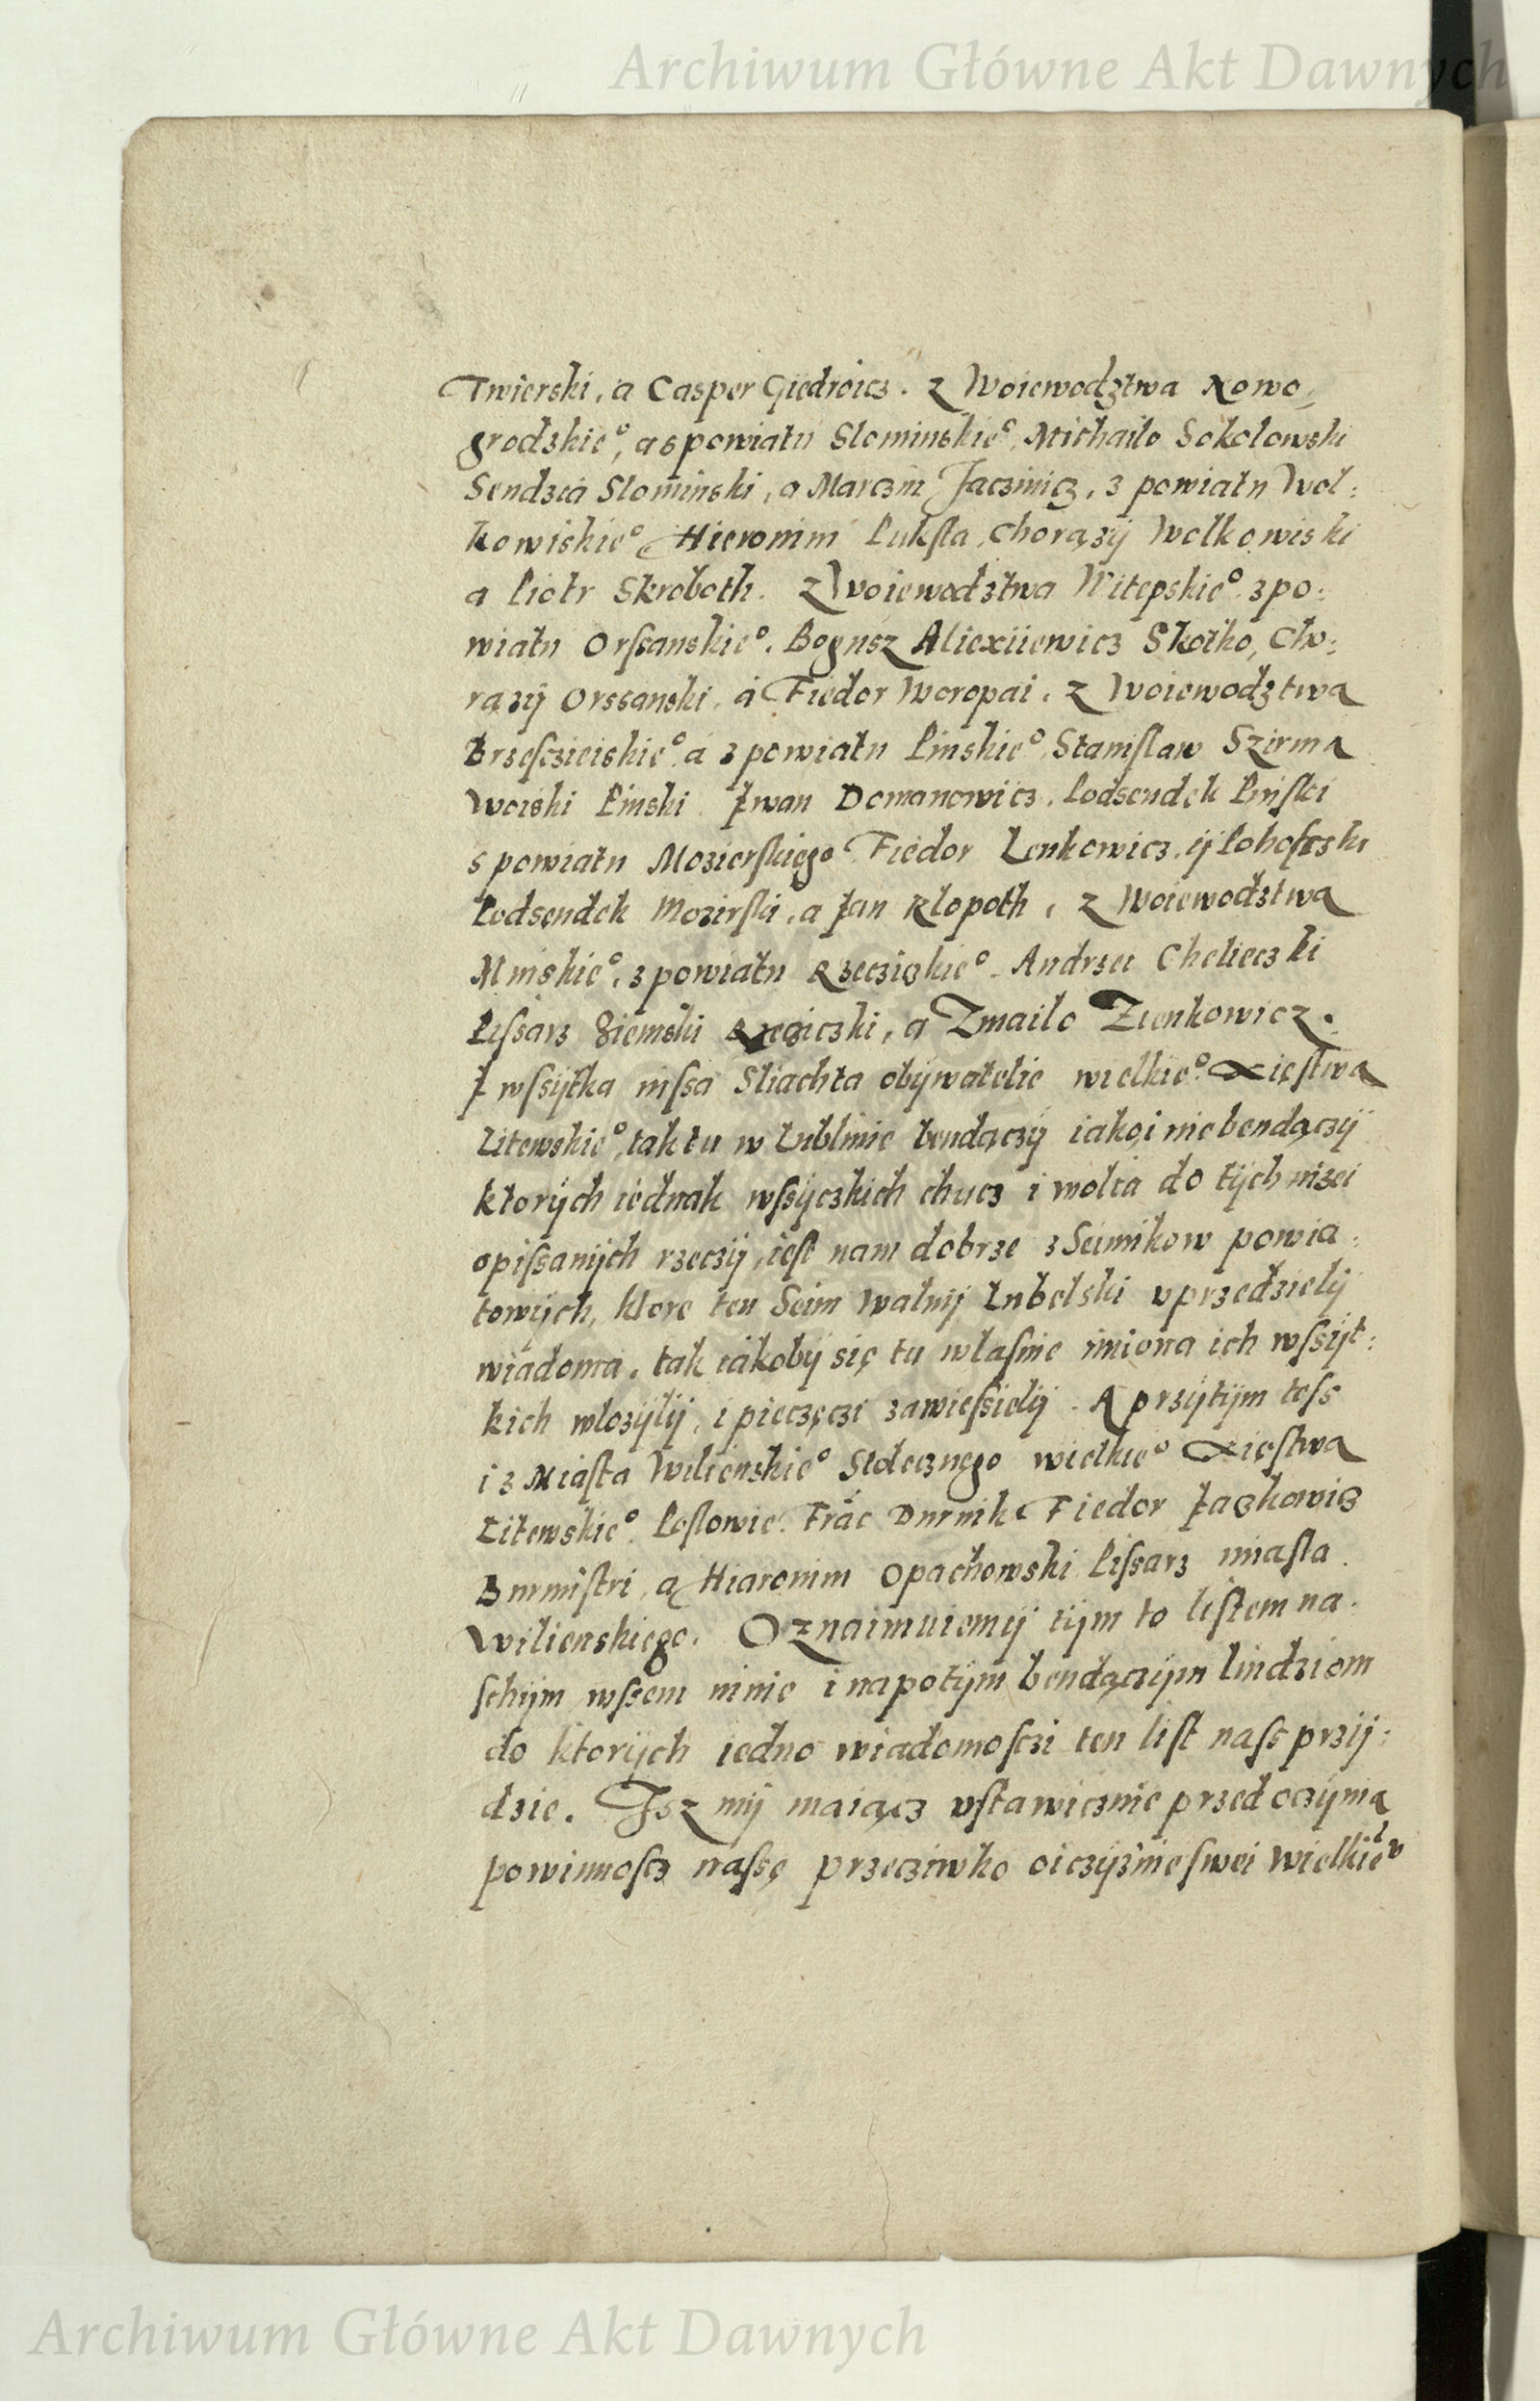 Archiwum Główne Akt Dawnych
Twierski, a Casper Giedroicz. z Woiewodztwa Nowo-
grodskie°, a s powiatu Slominskie°, Michailo Sokolowski
Sendzia Slominski, a Marczin Jaczinicz, z powiatu Wol:
kowiskie° Hieronim Puksta, Chorązÿ Wolkowiski
a Piotr Skroboth. z Woiewodztwa Witepskie° z po:
wiatu Orssanskie°. Bogusz Aliexiiewicz Skolko, Cho:
razÿ Orssanski, a Fiedor Woropai, z Woiewodztwa
Brzesczieiskie° a z powiatu Pinskie° Stanislaw Szirma
Woiski Pinski Iwan Domanowicz, Podsendek Pinski
s powiatu Mozierskiego Fiedor Lenkowicz ÿ Pohostzki
Podsendek Mozirski, a Jan Klopoth, z Woiewodztwa
Minskie°, z powiatu Rzeczickie° Andrzei Chelieczki
Pissarz Ziemski Rzeciczki, a Zmailo Zienkowicz.
I wssÿtka inssa Sliachta obÿwatelie wielkie° Xięstwa
Litewskie°, tak tu w Lublinie bendączÿ iako i nie bendączÿ
ktorÿch iednak wssÿczkich chucz i wolia do tÿch nizei
opissanÿch rzeczÿ, iest nam dobrze z Seimikow powia:
towÿch, ktore ten Seim walnÿ Lubelski uprzedzielÿ
wiadoma, tak iakobÿ się tu wlasnie imiona ich wssÿt:
kich wlozÿlÿ, i pieczęczi zawiessielÿ. A przÿ tÿm tess
i z Miasta Wilienskie° Stolecznego wielkie° Xięstwa
Litewskie° Poslowie. Frac Durnik Fiedor Jaczkowicz
Burmistri, a Hiaronim Opachowski Pissarz miasta
Wilienskiego. Oznaimuiemÿ tÿm to listem na.
schÿm wssem ninie i napotÿm bendączÿm liudziom
do ktorÿch iedno wiadomosczi ten list nass przÿ:
dzie. Isz mÿ maiącz ustawicznie przed oczÿma
powinnoscz nassę przecziwko oiczÿznie swei wielkie°
Archiwum Główne Akt Dawnych